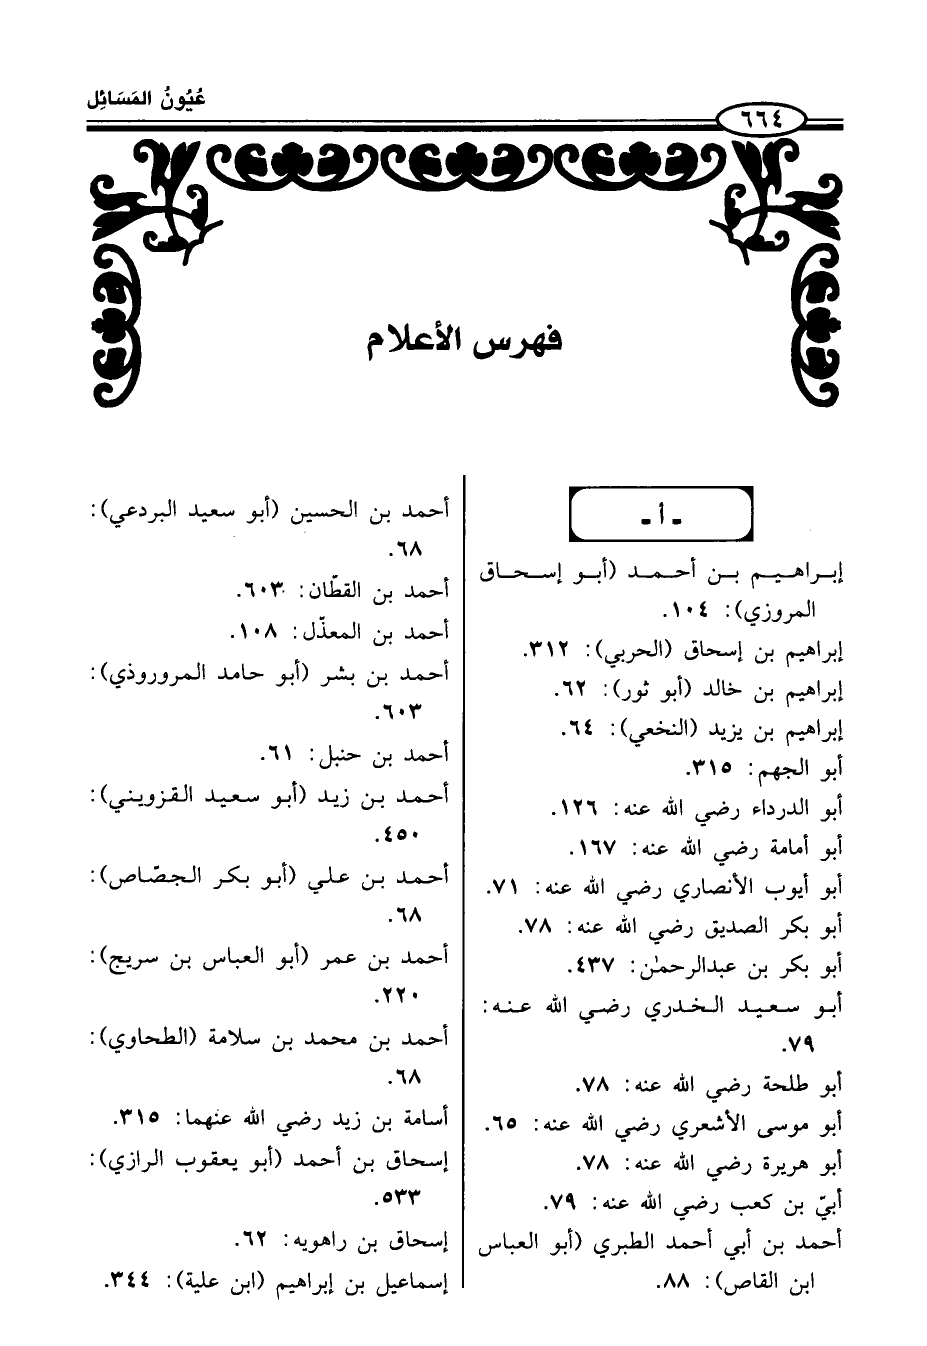 عُيُونُ المَسَائِل
٦٦٤
فهرس الأعلام
ـ أ ـ
إبراهيم بن أحمد (أبو إسحاق
المروزي): ١٠٤.
إبراهيم بن إسحاق (الحربي): ٣١٢.
إبراهيم بن خالد (أبو ثور): ٦٢.
إبراهيم بن يزيد (النخعي): ٦٤.
أبو الجهم: ٣١٥.
أبو الدرداء رضي الله عنه: ١٢٦.
أبو أمامة رضي الله عنه: ١٦٧.
أبو أيوب الأنصاري رضي الله عنه: ٧١.
أبو بكر الصديق رضي الله عنه: ٧٨.
أبو بكر بن عبدالرحمٰن: ٤٣٧.
أبو سعيد الخدري رضي الله عنه:
٧٩.
أبو طلحة رضي الله عنه: ٧٨.
أبو موسى الأشعري رضي الله عنه: ٦٥.
أبو هريرة رضي الله عنه: ٧٨.
أبيّ بن كعب رضي الله عنه: ٧٩.
أحمد بن أبي أحمد الطبري (أبو العباس
ابن القاص): ٨٨.
أحمد بن الحسين (أبو سعيد البردعي):
٦٨.
أحمد بن القطّان: ٦٠٣.
أحمد بن المعذّل: ١٠٨.
أحمد بن بشر (أبو حامد المروروذي):
٦٠٣.
أحمد بن حنبل: ٦١.
أحمد بن زيد (أبو سعيد القزويني):
٤٥٠.
أحمد بن علي (أبو بكر الجصّاص):
٦٨.
أحمد بن عمر (أبو العباس بن سريج):
٢٢٠.
أحمد بن محمد بن سلامة (الطحاوي):
٦٨.
أسامة بن زيد رضي الله عنهما: ٣١٥.
إسحاق بن أحمد (أبو يعقوب الرازي):
٥٣٣.
إسحاق بن راهويه: ٦٢.
إسماعيل بن إبراهيم (ابن علية): ٣٤٤.